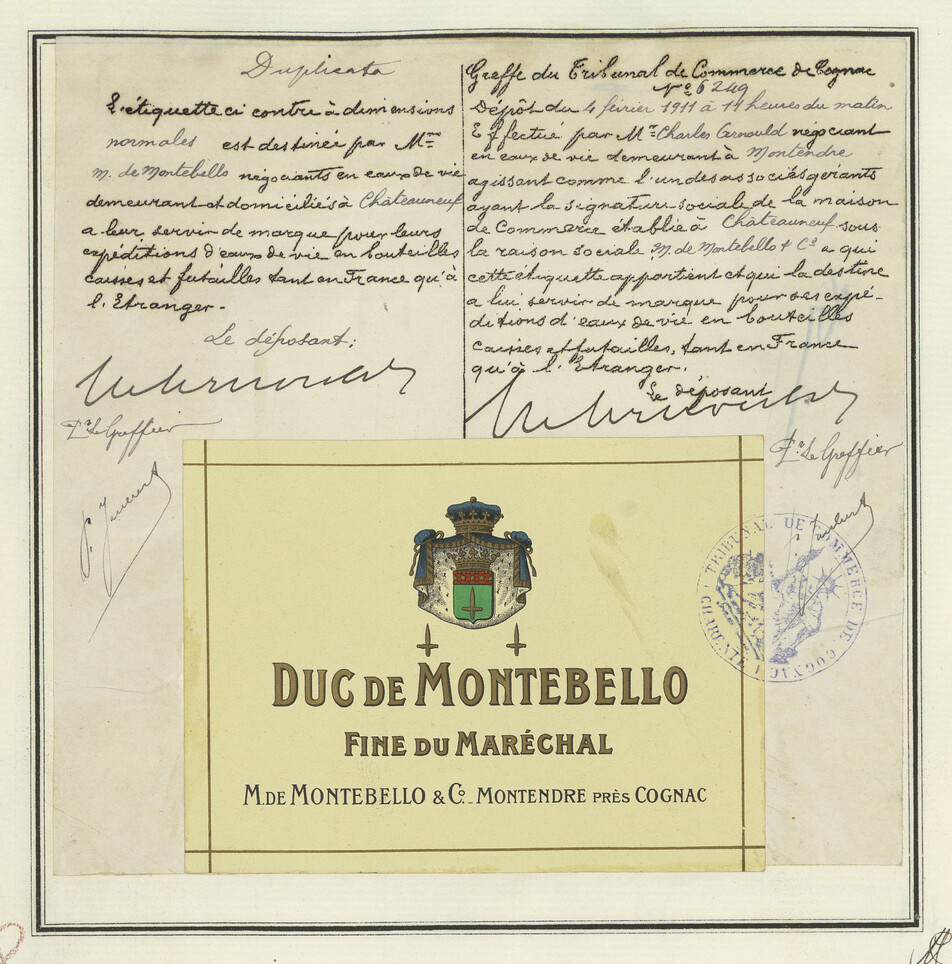 Duplicata
L'étiquette ci contre à dimensions
normales est destinée par Mrs
M. de Montebello négociants en eaux de vie
demeurant et domiciliés à Châteauneuf
a leur servir de marque pour leurs
expéditions d'eaux de vie en bouteilles
caisses et futailles tant en France qu'à
l'Etranger.
Le déposant:
Pr Le Greffier
Greffe du Tribunal de Commerce de Cognac
No 6249
Dépôt du 4 février 1911 à 11 heures du matin
Effectué par Mr Charles négociant
en eaux de vie demeurant à Montendre
agissant comme l'un des associés gerants
ayant la signature sociale de la maison
de Commerce établie à Châteauneuf sous
la raison sociale M. de Montebello & Co a qui
cette etiquette appartient et qui la destine
a lui servir de marque pour ses expé-
ditions d'eaux de vie en bouteilles
caisses et futailles, tant en France
qu'à l'Etranger.
Le déposant
Pr Le Greffier
TRIBUNAL DE COMMERCE DE COGNAC
DUC DE MONTEBELLO
FINE DU MARÉCHAL
M. DE MONTEBELLO & Co. - MONTENDRE PRÈS COGNAC